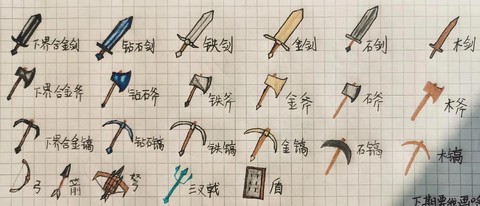 下界合金剑 钻石剑 铁剑 金剑 石剑 木剑
下界合金斧 钻石斧 铁斧 金斧 石斧 木斧
下界合金镐 钻石镐 铁镐 金镐 石镐 木镐
弓 箭 弩 三叉戟 盾
下期要画